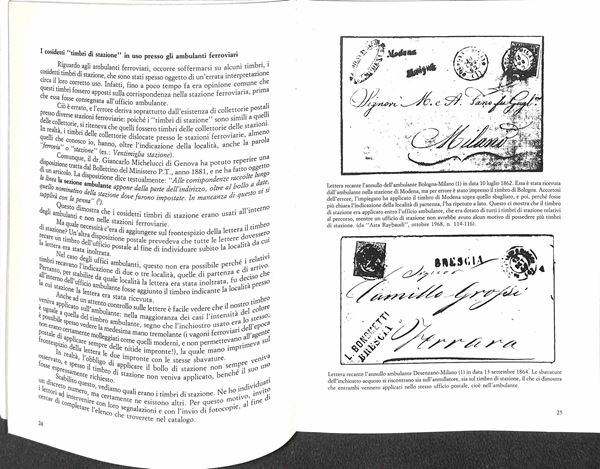 I cosidetti "timbri di stazione" in uso presso gli ambulanti ferroviari
Riguardo agli ambulanti ferroviari, occorre soffermarsi su alcuni timbri, i
cosidetti timbri di stazione, che sono stati spesso oggetto di un'errata interpretazione
circa il loro corretto uso. Infatti, fino a poco tempo fa era opinione comune che
questi timbri fossero apposti sulla corrispondenza nella stazione ferroviaria, prima
che essa fosse consegnata all'ufficio ambulante.
Ciò è errato, e l'errore deriva soprattutto dall'esistenza di collettorie postali
presso diverse stazioni ferroviarie: poiché i "timbri di stazione" sono simili a quelli
delle collettorie, si riteneva che quelli fossero timbri delle collettorie delle stazioni.
In realtà, i timbri delle collettorie dislocate presso le stazioni ferroviarie, almeno
quelli che conosco io, hanno, oltre l'indicazione della località, anche la parola
"ferrovia" o "stazione" (es.: Ventimiglia stazione).
Comunque, il dr. Giancarlo Michelucci di Genova ha potuto reperire una
disposizione tratta dal Bollettino del Ministero P.T., anno 1881, e ne ha fatto oggetto
di un articolo. La disposizione dice testualmente: "Alle corrispondenze raccolte lungo
la linea la sezione ambulante appone dalla parte dell'indirizzo, oltre al bollo a date,
quello nominativo della stazione dove furono impostate. In mancanza di questo si
supplirà con la penna"
Questo dimostra che i cosidetti timbri di stazione erano usati all'interno
degli ambulanti e non nelle stazioni ferroviarie.
Ma quale necessità c'era di aggiungere sul frontespizio della lettera il timbro
di stazione? Un'altra disposizione postale prevedeva che tutte le lettere dovessero
recare un timbro dell'ufficio postale al fine di individuare subito la località da cui
la lettera era stata inoltrata.
Nel caso degli uffici ambulanti, questo non era possibile perché i relativi
timbri recavano l'indicazione di due o tre località, quelle di partenza e di arrivo.
Pertanto, per stabilire da quale località la lettera era stata inoltrata, fu deciso che
al timbro dell'ufficio ambulante fosse aggiunto il timbro indicante la località presso
la cui stazione la lettera era stata ricevuta.
Anche ad un attento controllo sulle lettere è facile vedere che il nostro timbro
veniva applicato sull'ambulante: nella maggioranza dei casi l'intensità del colore
è uguale a quella del timbro ambulante, segno che l'inchiostro usato era lo stesso;
è possibile spesso vedere la medesima mano tremolante (i vagoni ferroviari dell'epoca
non erano certamente molleggiati come quelli moderni, e non permettevano all'agente
postale di applicare sempre delle nitide impronte!), la quale mano imprimeva sul
frontespizio della lettera le due impronte con le stesse sbavature.
In realtà, l'obbligo di applicare il bollo di stazione non sempre veniva
osservato, e spesso il timbro di stazione non veniva applicato, benché il suo uso
fosse espressamente richiesto.
Stabilito questo, vediamo quali erano i timbri di stazione. Ne ho individuati
un discreto numero, ma certamente ne esistono altri. Per questo motivo, invito
i lettori ad intervenire con loro segnalazioni e con l'invio di fotocopie, al fine di
cercar di completare l'elenco che troverete nel catalogo.
24
Modena
Signori M. e A.
Milano
Lettera recante l'annullo dell'ambulante Bologna-Milano (1) in data 10 luglio 1862. Essa è stata ricevuta
dall'ambulante nella stazione di Modena, ma per errore è stato impresso il timbro di Bologna. Accortosi
dell'errore, l'impiegato ha applicato il timbro di Modena sopra quello sbagliato, e poi, perché fosse
più chiara l'indicazione della località di partenza, l'ha ripetuto a lato. Questo ci mostra che il timbro
di stazione era applicato entro l'ufficio ambulante, che era dotato di tutti i timbri di stazione relativi
al percorso, mentre un ufficio di stazione non avrebbe avuto alcun motivo di possedere più timbri
di stazione. (da "Asta Raybaudi", ottobre 1968, n. 114-116).
BRESCIA
Camillo Grossi
Ferrara
L. BORGHETTI
BRESCIA
Lettera recante l'annullo ambulante Desenzano-Milano (1) in data 13 settembre 1864. Le sbavature
dell'inchiostro acquoso si riscontrano sia sull'annullatore, sia sul timbro di stazione, il che ci dimostra
che entrambi vennero applicati nello stesso ufficio postale, cioè nell'ambulante.
25